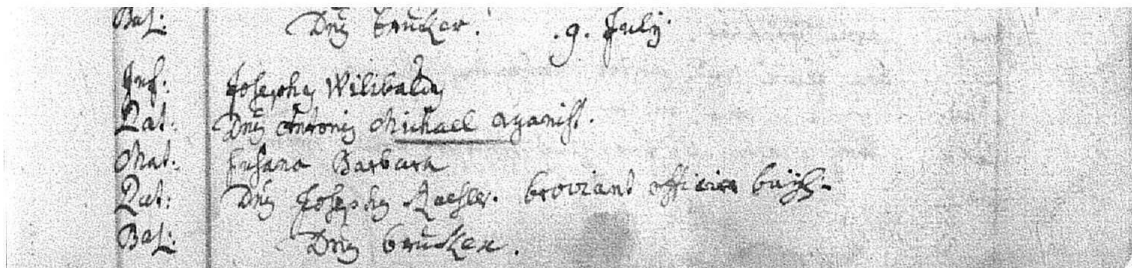 Bas: Dnus brucker. . 9. July.
Inf: Josephus Wilibaldus
Pat: Dnus Antonius Michael
Mat: Susana Barbara
Pat: Dnus Josephus broviant officier
Bas: Dnus brucker.